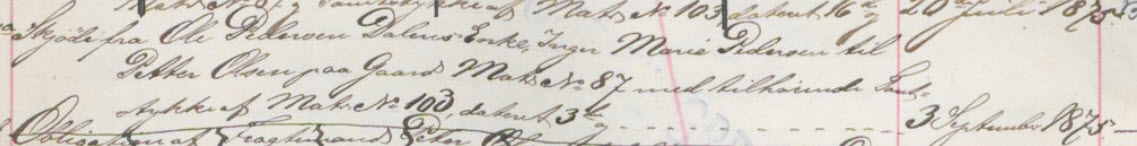 Matr. № 87 og Samtstykke af Matr. № 103 dateret 16de og 20 Juli 1875
Skjøde fra Ole Pedersen Dalens Enke, Inger Marie Pedersen til
Petter Olsen paa Gaard Matr. № 87 med tilhørende Sant-
stykke af Matr. № 103, dateret 3de og - - - - - - - - 3 September 1875 —
Obligation af Fragtemand Peter